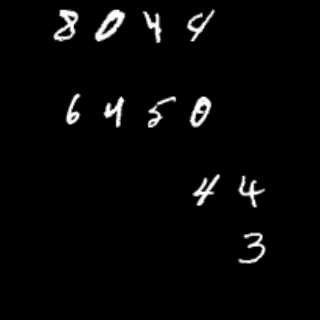 8044
6450
44
3